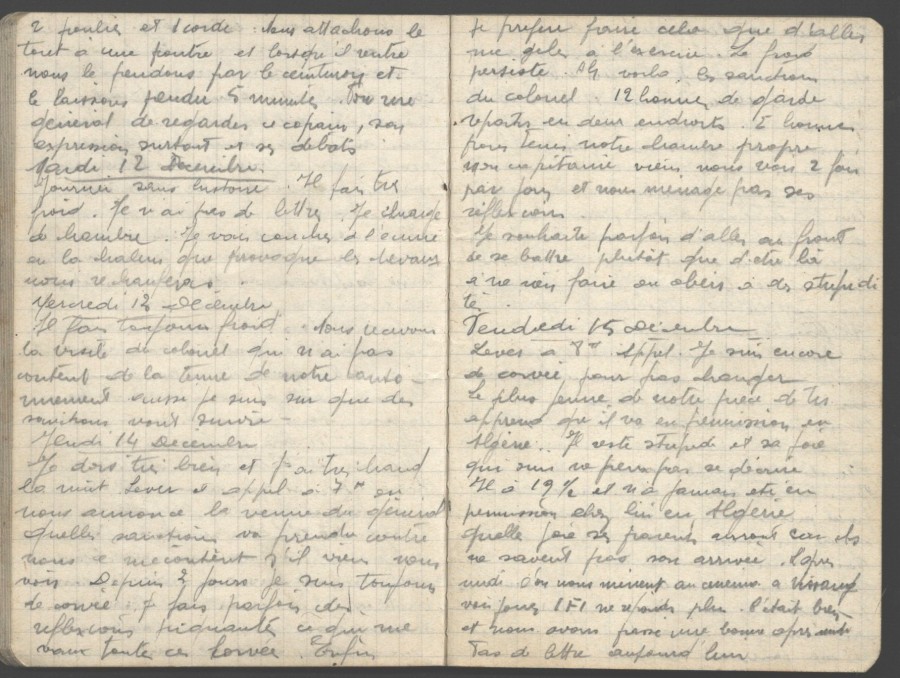 2 poulies et 1 corde. Nous attachons le
tout a une poutre et lorsqu'il rentre
nous le pendons par le ceinturon et
le laissons pendu 5 minutes. Fou rire
général de regarder ce copain, son
expression surtout et ses débats
Mardi 12 Decembre.
Journée sans histoire. Il fait très
froid. Je n'ai pas de lettre. Je change
de chambre. Je vais coucher à l'écurie
ou la chaleur que provoque les chevaux
nous rechauffera.
Mercredi 13 Décembre
Il fait toujours froid. Nous recevons
la visite du colonel qui n'ai pas
content de la tenue de notre
aussi je suis sur que des
sanctions vont suivre -
Jeudi 14 Decembre
Je dors très bien et j'ai très chaud
la nuit. Lever et appel à 7 h on
nous annonce la venue du général
quelles sanctions va prendre contre
nous ce mécontent s'il vien nous
voir. Depuis 3 jours je suis toujours
de corvée. Je fais parfois des
reflexions piquantes ce qui me
vaux toute ces corvée. Enfin
je prefere faire cela que d'aller
me geler à l'exercice. Le froid
persiste. voila les sanctions
du colonel. 12 hommes de garde
repartis en deux endroits. E hommes
pour tenir notre chambre propre
mon capitaine viens nous voir 2 fois
par jour et nous menage pas ses
réflexions.
Je souhaite parfois d'aller au front
de se battre plutôt que d'etre là
à ne rien faire ou obeir à des stupidi
té.
Vendredi 15 Décembre
Lever à 7 h Appel. Je suis encore
de corvée pour pas changer
Le plus jeune de notre pièce de tir
apprend qu'il va en permission en
Algérie. Il reste stupide et sa joie
qui suis ne peux pas se décrire
Il à 19 ½ et n'a jamais été en
permission chez lui en Algérie
quelle joie ses parents auront car ils
ne savent pas son arrivée. L'apres
midi l'on nous mènent au cinema a
voir jouer ne reponds plus. C'était bien
et nous avons passé une bonne apres midi
Pas de lettre aujourd'hui